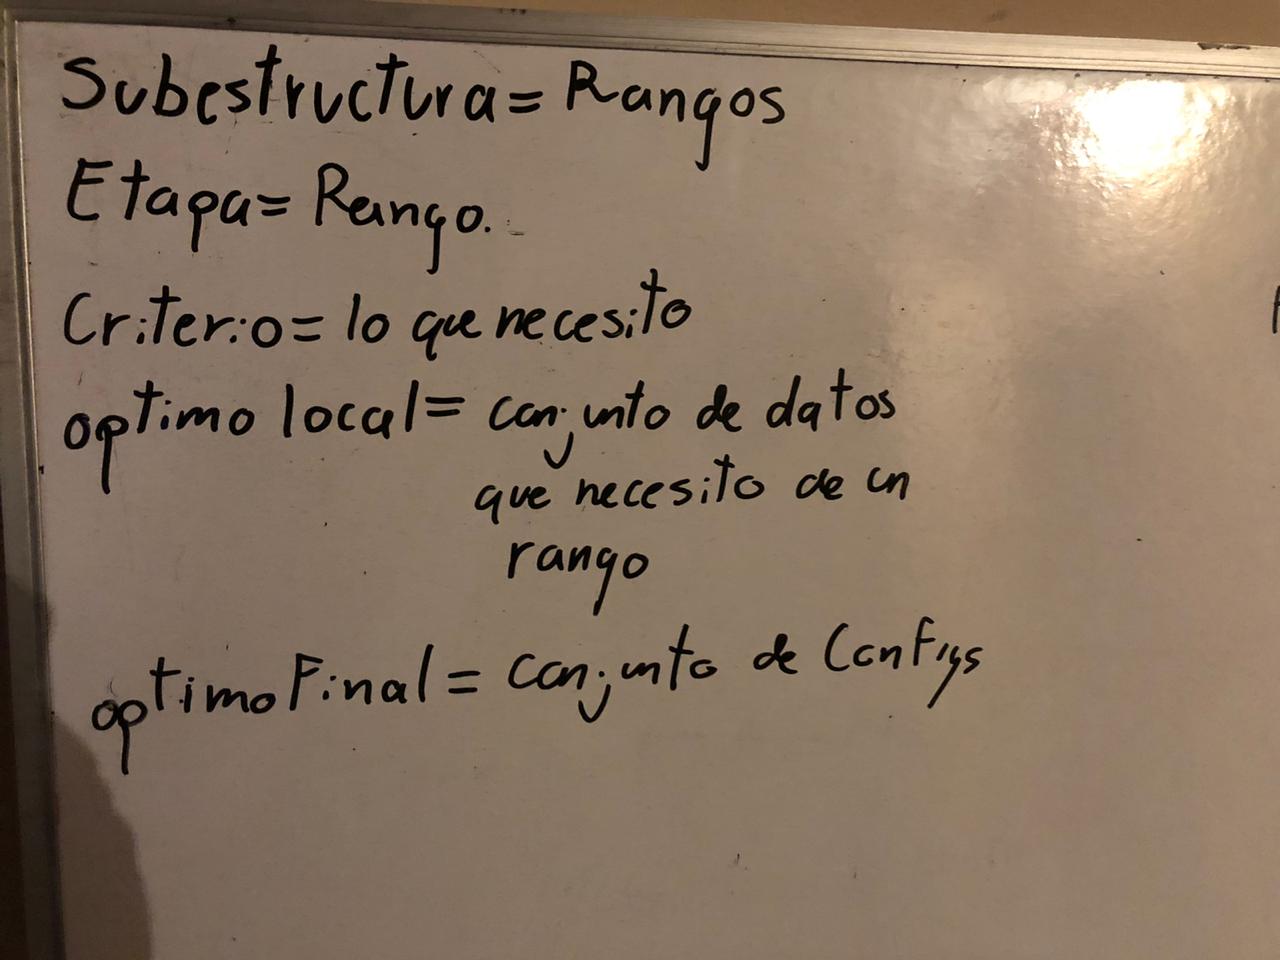 Subestructura= Rangos
Etapa= Rango.
Criterio= lo que necesito
optimo local= conjunto de datos
que necesito de un
rango
optimo Final= conjunto de Configs